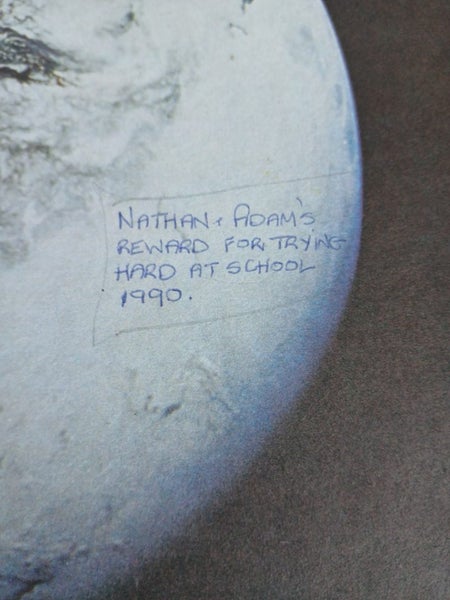 NATHAN + ADAM'S
REWARD FOR TRYING
HARD AT SCHOOL
1990.